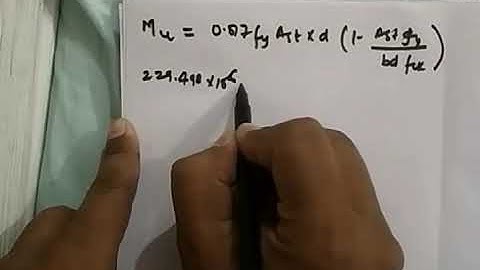 Mu = 0.87 fy Ast x d (1 - Ast fy / bd fck)
229.490 x 10⁶